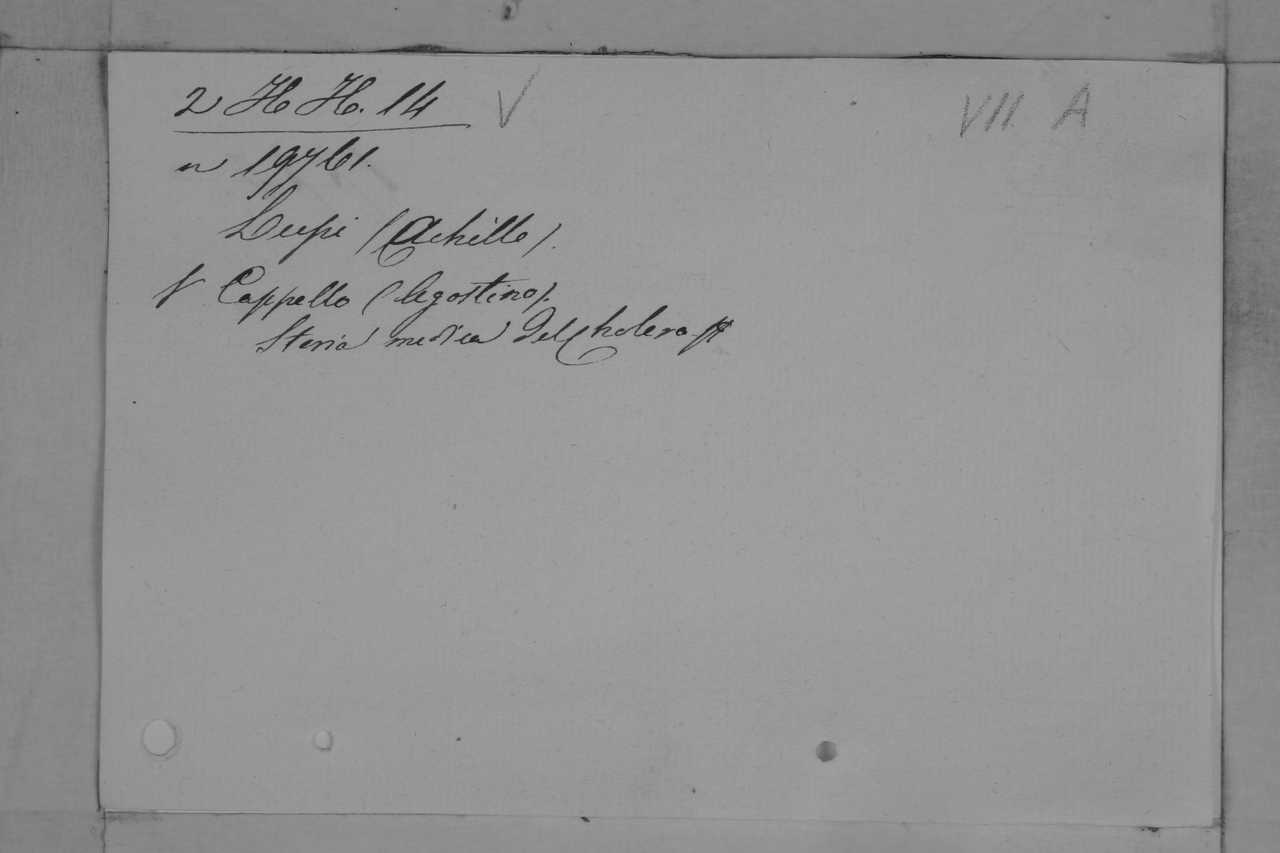 2 H H. 14 V VII A
n 19761.
Lupi (Achille).
V Cappello (Agostino).
Storia medica del Cholera